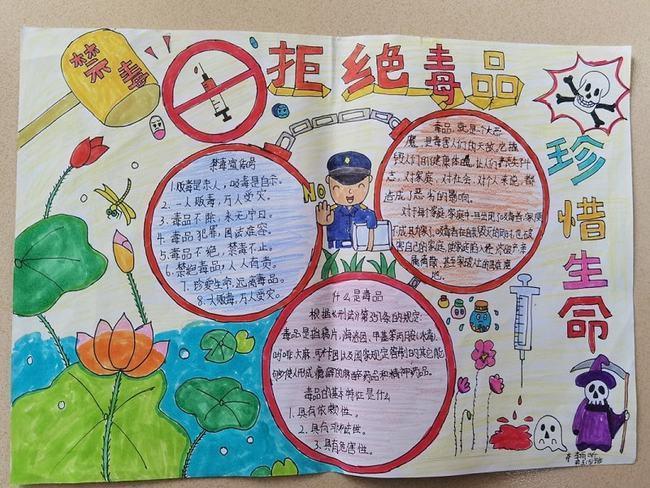 禁毒
拒绝毒品
珍惜生命
NO
1.贩毒是杀人,吸毒是自杀。
2.一人贩毒,万人受灾。
3.毒品不除,永无宁日。
4.毒品犯罪,国法难容。
5.毒品不绝,禁毒不止。
6.禁绝毒品,人人有责。
7.珍爱生命,远离毒品。
8.一人贩毒,万人受灾。
毒品,就是一个大恶
魔,是毒害人们的天敌,它摧
毁人们的健康体魄,让人们丧失斗
志,对家庭,对社会,对个人来说,都
造成了恶劣的影响。
什么是毒品
根据《刑法》第357条的规定:
毒品是指鸦片,海洛因,甲基苯丙胺(冰毒),
吗啡,大麻,可卡因以及国家规定管制的其它能
够使人形成瘾癖的麻醉药品和精神药品。
毒品的基本特征是什么
1.具有依赖性。
2.具有非法性。
3.具有危害性。